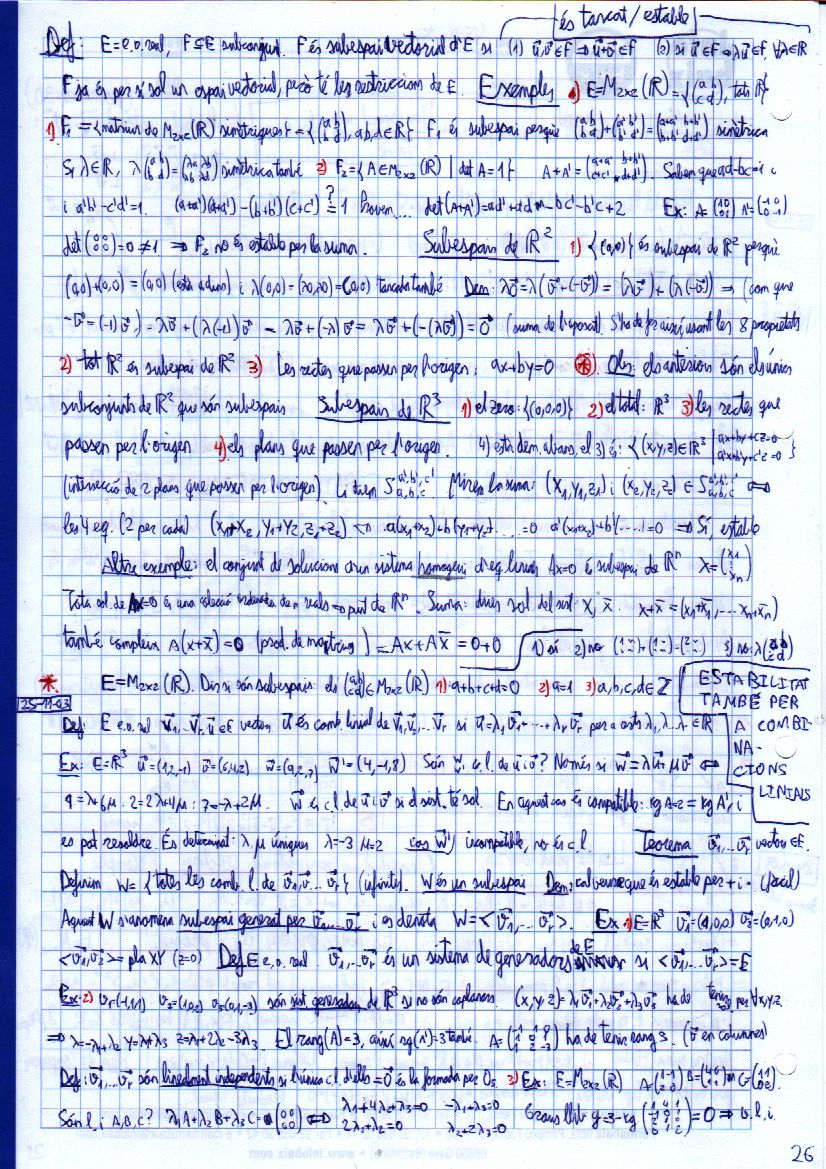 és tancat/estable
Def: E = e.v. real, F⊆E subconjunt. F és subespai vectorial d'E si (1) u⃗,v⃗∈F ⇒ u⃗+v⃗∈F (2) si u⃗∈F ⇒ λu⃗∈F, ∀λ∈ℝ
F ja és per sí sol un espai vectorial, però té les restriccions de E. Exemples E=M₂ₓ₂(ℝ)={(a b; c d), tots ℝ}
1) F₁={matrius de M₂ₓ₂(ℝ) simètriques}={(a b; b d), a,b,d∈ℝ} F₁ és subespai perquè (a b; b d)+(a' b'; b' d')=(a+a' b+b'; b+b' d+d') simètrica
Si λ∈ℝ, λ(a b; b d)=(λa λb; λb λd) simètrica també 2) F₂={A∈M₂ₓ₂(ℝ) | det A=1} A+A'=(a+a' b+b'; c+c' d+d'). Sabem que ad-bc=1 i
i a'b'-c'd'=1. (a+a')(d+d')-(b+b')(c+c') ?= 1 Provem... det(A+A')=ad'+a'd-bc'-b'c+2 Ex: A=(1 0; 0 1) A'=(-1 0; 0 -1)
det(0 0; 0 0)=0≠1 ⇒ F₂ no és estable per la suma. Subespais de ℝ² 1) {(0,0)} és subespai de ℝ² perquè
(0,0)+(0,0)=(0,0) (està a dins) i λ(0,0)=(λ0,λ0)=(0,0) tancat també Dem: λ0⃗=λ(v⃗+(-v⃗))=(λv⃗)+(λ(-v⃗)) ⇒ (com que
-v⃗=(-1)v⃗)=λv⃗+(λ(-1))v⃗=λv⃗+(-λ)v⃗=λv⃗+(-(λv⃗))=0⃗ (suma de l'oposat). S'ha de fer així, usant les 8 propietats
2) tot ℝ² és subespai de ℝ² 3) Les rectes que passen per l'origen: ax+by=0 ⊛. Obs: els anteriors són els únics
subconjunts de ℝ² que són subespais Subespais de ℝ³ 1) el zero: {(0,0,0)} 2) el total: ℝ³ 3) les rectes que
passen per l'origen 4) els plans que passen per l'origen. 4) està dem. abans, el 3) és: {(x,y,z)∈ℝ³ | ax+by+cz=0; a'x+b'y+c'z=0}
(intersecció de 2 plans que passen per l'origen) Li diem S a',b',c' a,b,c. Mirem la suma: (x₁,y₁,z₁) i (x₂,y₂,z₂) ∈ S a',b',c' a,b,c ⇔
les 4 eq. (2 per cada) (x₁+x₂, y₁+y₂, z₁+z₂) a(x₁+x₂)+b(y₁+y₂)+.....=0 a'(x₁+x₂)+b'(.....)=0 ⇒ Sí, estable
Altre exemple: el conjunt de solucions d'un sistema homogeni d'eq. lineals Ax=0 és subespai de ℝⁿ X=(x₁ ⋮ xₙ)
Tota sol. de Ax=0 és una col·lecció ordenada de n reals ⇒ punt de ℝⁿ. Suma: dues sol. del sist: x, x̄. x+x̄=(x₁+x̄₁, ... xₙ+x̄ₙ)
també compleix A(x+x̄)=0 (prod. de matrius)=Ax+Ax̄=0+0 1) sí 2) no 3) no
* E=M₂ₓ₂(ℝ). Dir si són subespais: els (a b; c d)∈M₂ₓ₂(ℝ) 1) a+b+c+d=0 2) a=1 3) a,b,c,d∈ℤ
ESTABILITAT
TAMBÉ PER
A COMBI-
NA-
CIONS
LINIALS
25-11-03
Def: E e.v. real v⃗₁,...v⃗ᵣ,u⃗∈E vectors u⃗ és comb. linial de v⃗₁,v⃗₂...v⃗ᵣ si u⃗=λ₁v⃗₁+...+λᵣv⃗ᵣ per a certs λ₁,λ...λᵣ∈ℝ
Ex: E=ℝ³ u⃗=(1,2,-1) v⃗=(6,4,2) w⃗=(9,2,7) w⃗'=(4,-1,8) Són w⃗, w⃗' c.l. de u⃗ i v⃗? Només si w⃗=λu⃗+μv⃗ ⇔
9=λ+6μ; 2=2λ+4μ; 7=-λ+2μ. w⃗ és c.l. de u⃗ i v⃗ si el sist. té sol. En aquest cas és compatible: rg A=2=rg A', i
es pot resoldre. És determinat: λ,μ úniques λ=-3 μ=2 cas w⃗') incompatible, no és c.l. Teorema v⃗₁,...v⃗ᵣ vectors∈E.
Definim W={totes les comb. l. de v⃗₁,v⃗...v⃗ᵣ} (infinites). W és un subespai Dem: cal veure que és estable per + i · (fàcil)
Aquest W s'anomena subespai generat per v⃗₁,...v⃗ᵣ i es denota W=<v⃗₁,...v⃗ᵣ>. Ex 1) E=ℝ³ v⃗₁=(1,0,0) v⃗₂=(0,1,0)
<v⃗₁,v⃗₂>=pla XY (z=0) Def E e.v. real v⃗₁,...v⃗ᵣ és un sistema de generadors de E si <v⃗₁,...v⃗ᵣ>=E
Ex: 2) v₁=(-1,1,1) v₂=(1,0,2) v₃=(0,1,-3) són sist. generador de ℝ³ si no són coplanaris. (x,y,z)=λ₁v⃗₁+λ₂v⃗₂+λ₃v⃗₃ ha de tenir sol. per ∀x,y,z
⇒ x=-λ₁+λ₂ y=λ₁+λ₃ z=λ₁+2λ₂-3λ₃. El rang(A)=3, així rg(A')=3 també. A=(-1 1 0; 1 0 1; 1 2 -3) ha de tenir rang 3. (v⃗ en columnes)
Def: v⃗₁,...v⃗ᵣ són linealment independents si l'única c.l. d'ells=0⃗ és la formada per 0s. 3) Ex: E=M₂ₓ₂(ℝ)
Són l.i. A,B,C? λ₁A+λ₂B+λ₃C=(0 0; 0 0) ⇔ λ₁+4λ₂+λ₃=0 -λ₁+λ₃=0 2λ₁+λ₂=0 λ₂+2λ₃=0 Graus llib. g=3-rg =0 ⇒ v. l.i.
26